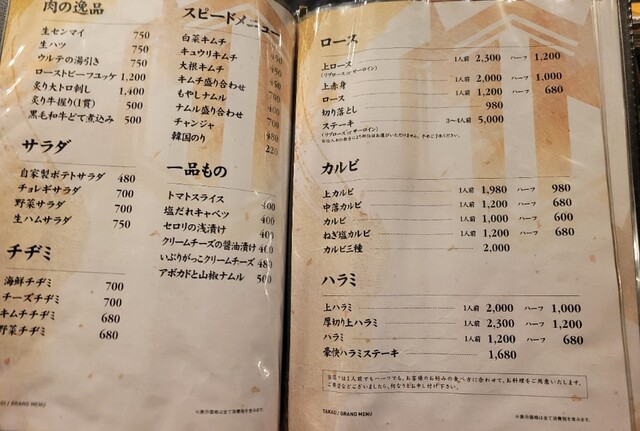 肉の逸品
生センマイ 750
生ハツ 750
ウルテの湯引き 750
ローストビーフユッケ 1,200
炙り大トロ刺し 1,400
炙り牛握り(1貫) 500
黒毛和牛どて煮込み 500
サラダ
自家製ポテトサラダ 480
チョレギサラダ 700
野菜サラダ 700
生ハムサラダ 750
チヂミ
海鮮チヂミ 700
チーズチヂミ 700
キムチチヂミ 680
野菜チヂミ 680
スピードメニュー
白菜キムチ 450
キュウリキムチ 450
大根キムチ 450
キムチ盛り合わせ
もやしナムル
ナムル盛り合わせ 700
チャンジャ 480
韓国のり 220
一品もの
トマトスライス 400
塩だれキャベツ 400
セロリの浅漬け 400
クリームチーズの醤油漬け 400
いぶりがっこクリームチーズ 480
アボカドと山椒ナムル 500
/ GRAND MENU
※表示価格は全て消費税を含みます。
ロース
上ロース 1人前 2,300 ハーフ 1,200
(リブロース又はサーロイン)
上赤身 1人前 2,000 ハーフ 1,000
ロース 1人前 1,200 ハーフ 680
切り落とし 980
ステーキ 3〜4人前 5,000
(リブロース又はサーロイン)
カルビ
上カルビ 1人前 1,980 ハーフ 980
中落カルビ 1人前 1,200 ハーフ 680
カルビ 1人前 1,000 ハーフ 600
ねぎ塩カルビ 1人前 1,200 ハーフ 680
カルビ三種 2,000
ハラミ
上ハラミ 1人前 2,000 ハーフ 1,000
厚切り上ハラミ 1人前 2,300 ハーフ 1,200
ハラミ 1人前 1,200 ハーフ 680
豪快ハラミステーキ 1,680
当店では1人前でもハーフでも、お客様のお好みの食べ方に合わせて、お料理をご用意いたします。
ご希望などございましたら、何なりとお申し付け下さい。
TAKAO / GRAND MENU
※表示価格は全て消費税を含みます。